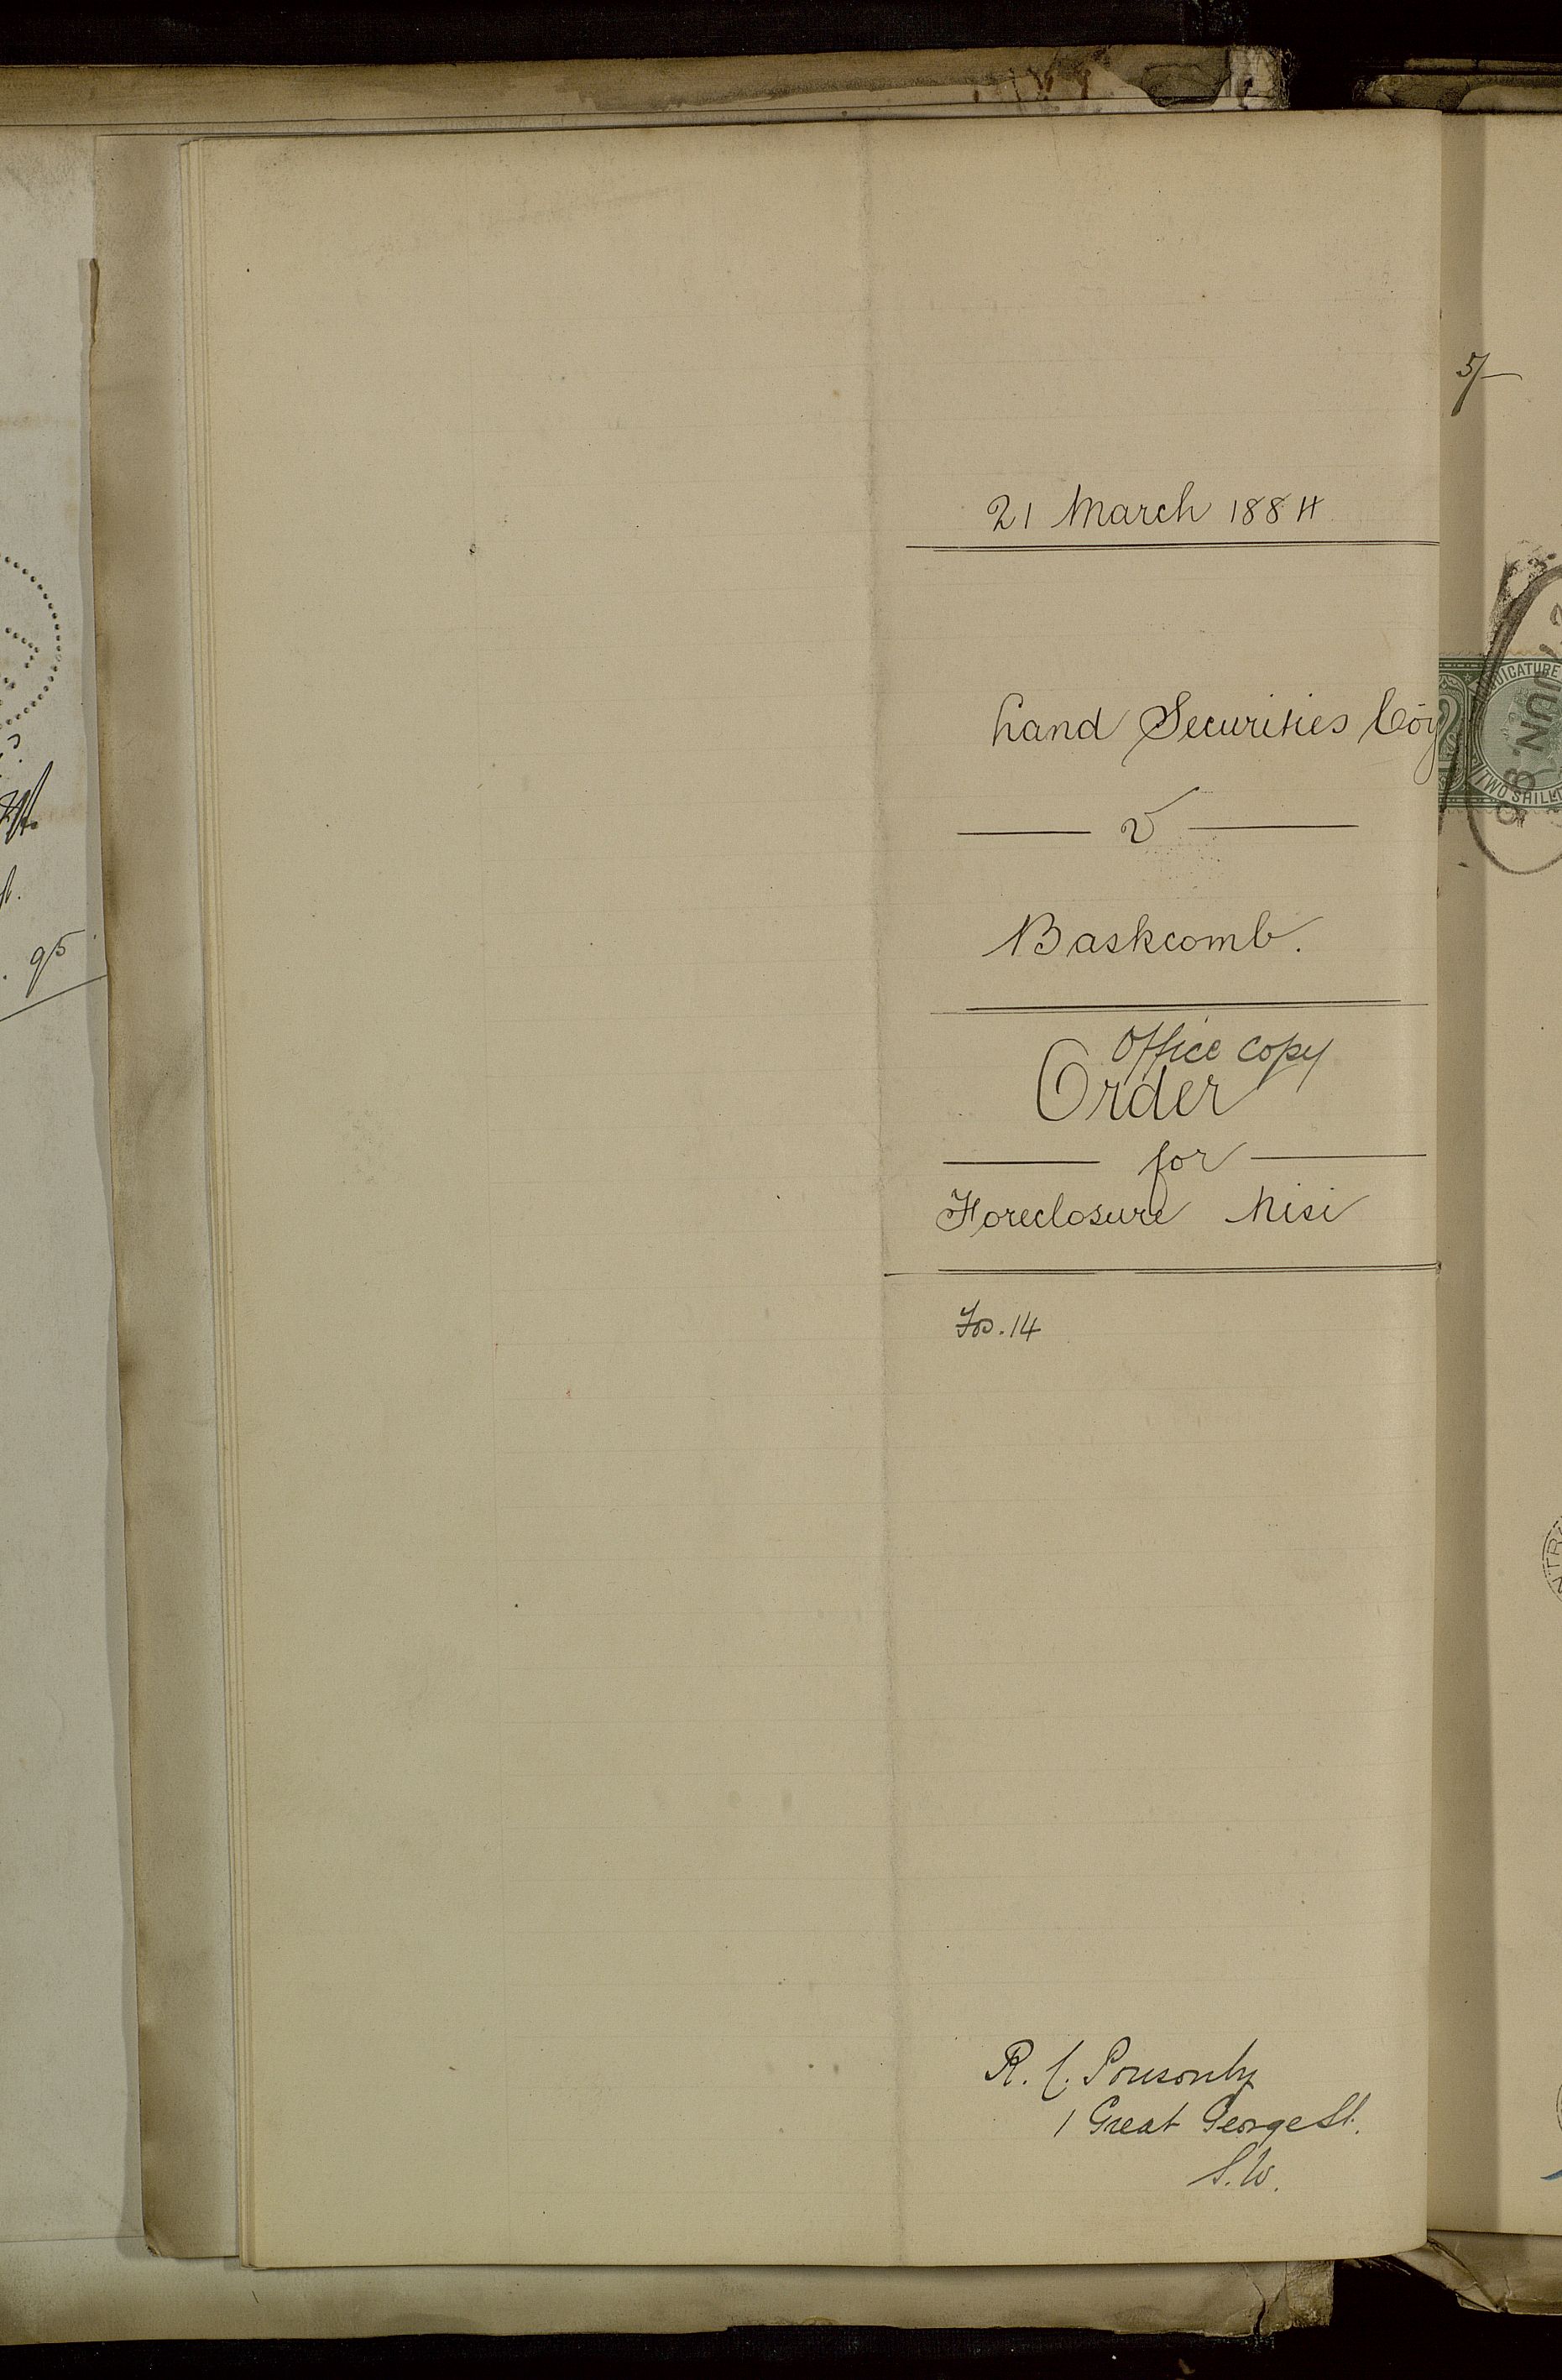 21 March 1884
Land Securities Coy
v
Baskcomb.
Office copy
Order
for
Foreclosure Nisi
Fos. 14
R. C. Ponsonby
1 Great George St.
S.W.
5/-
JUDICATURE
TWO SHILL
JUN. 86
95